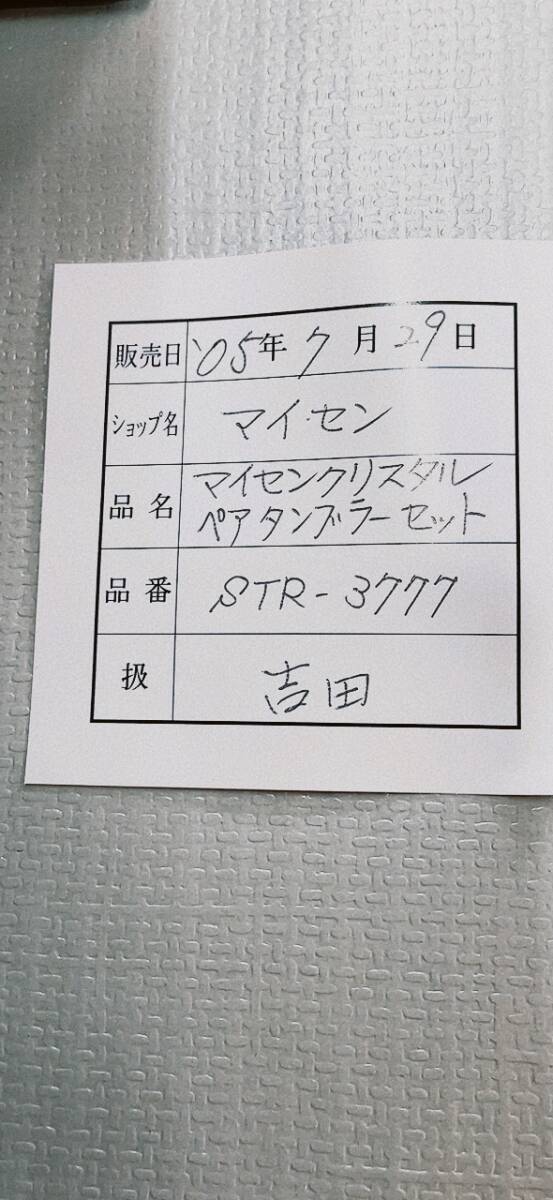 販売日 '05年 7月 29日
ショップ名 マイ・セン
品名 マイセンクリスタル
ペアタンブラーセット
品番 STR-3777
扱 吉田